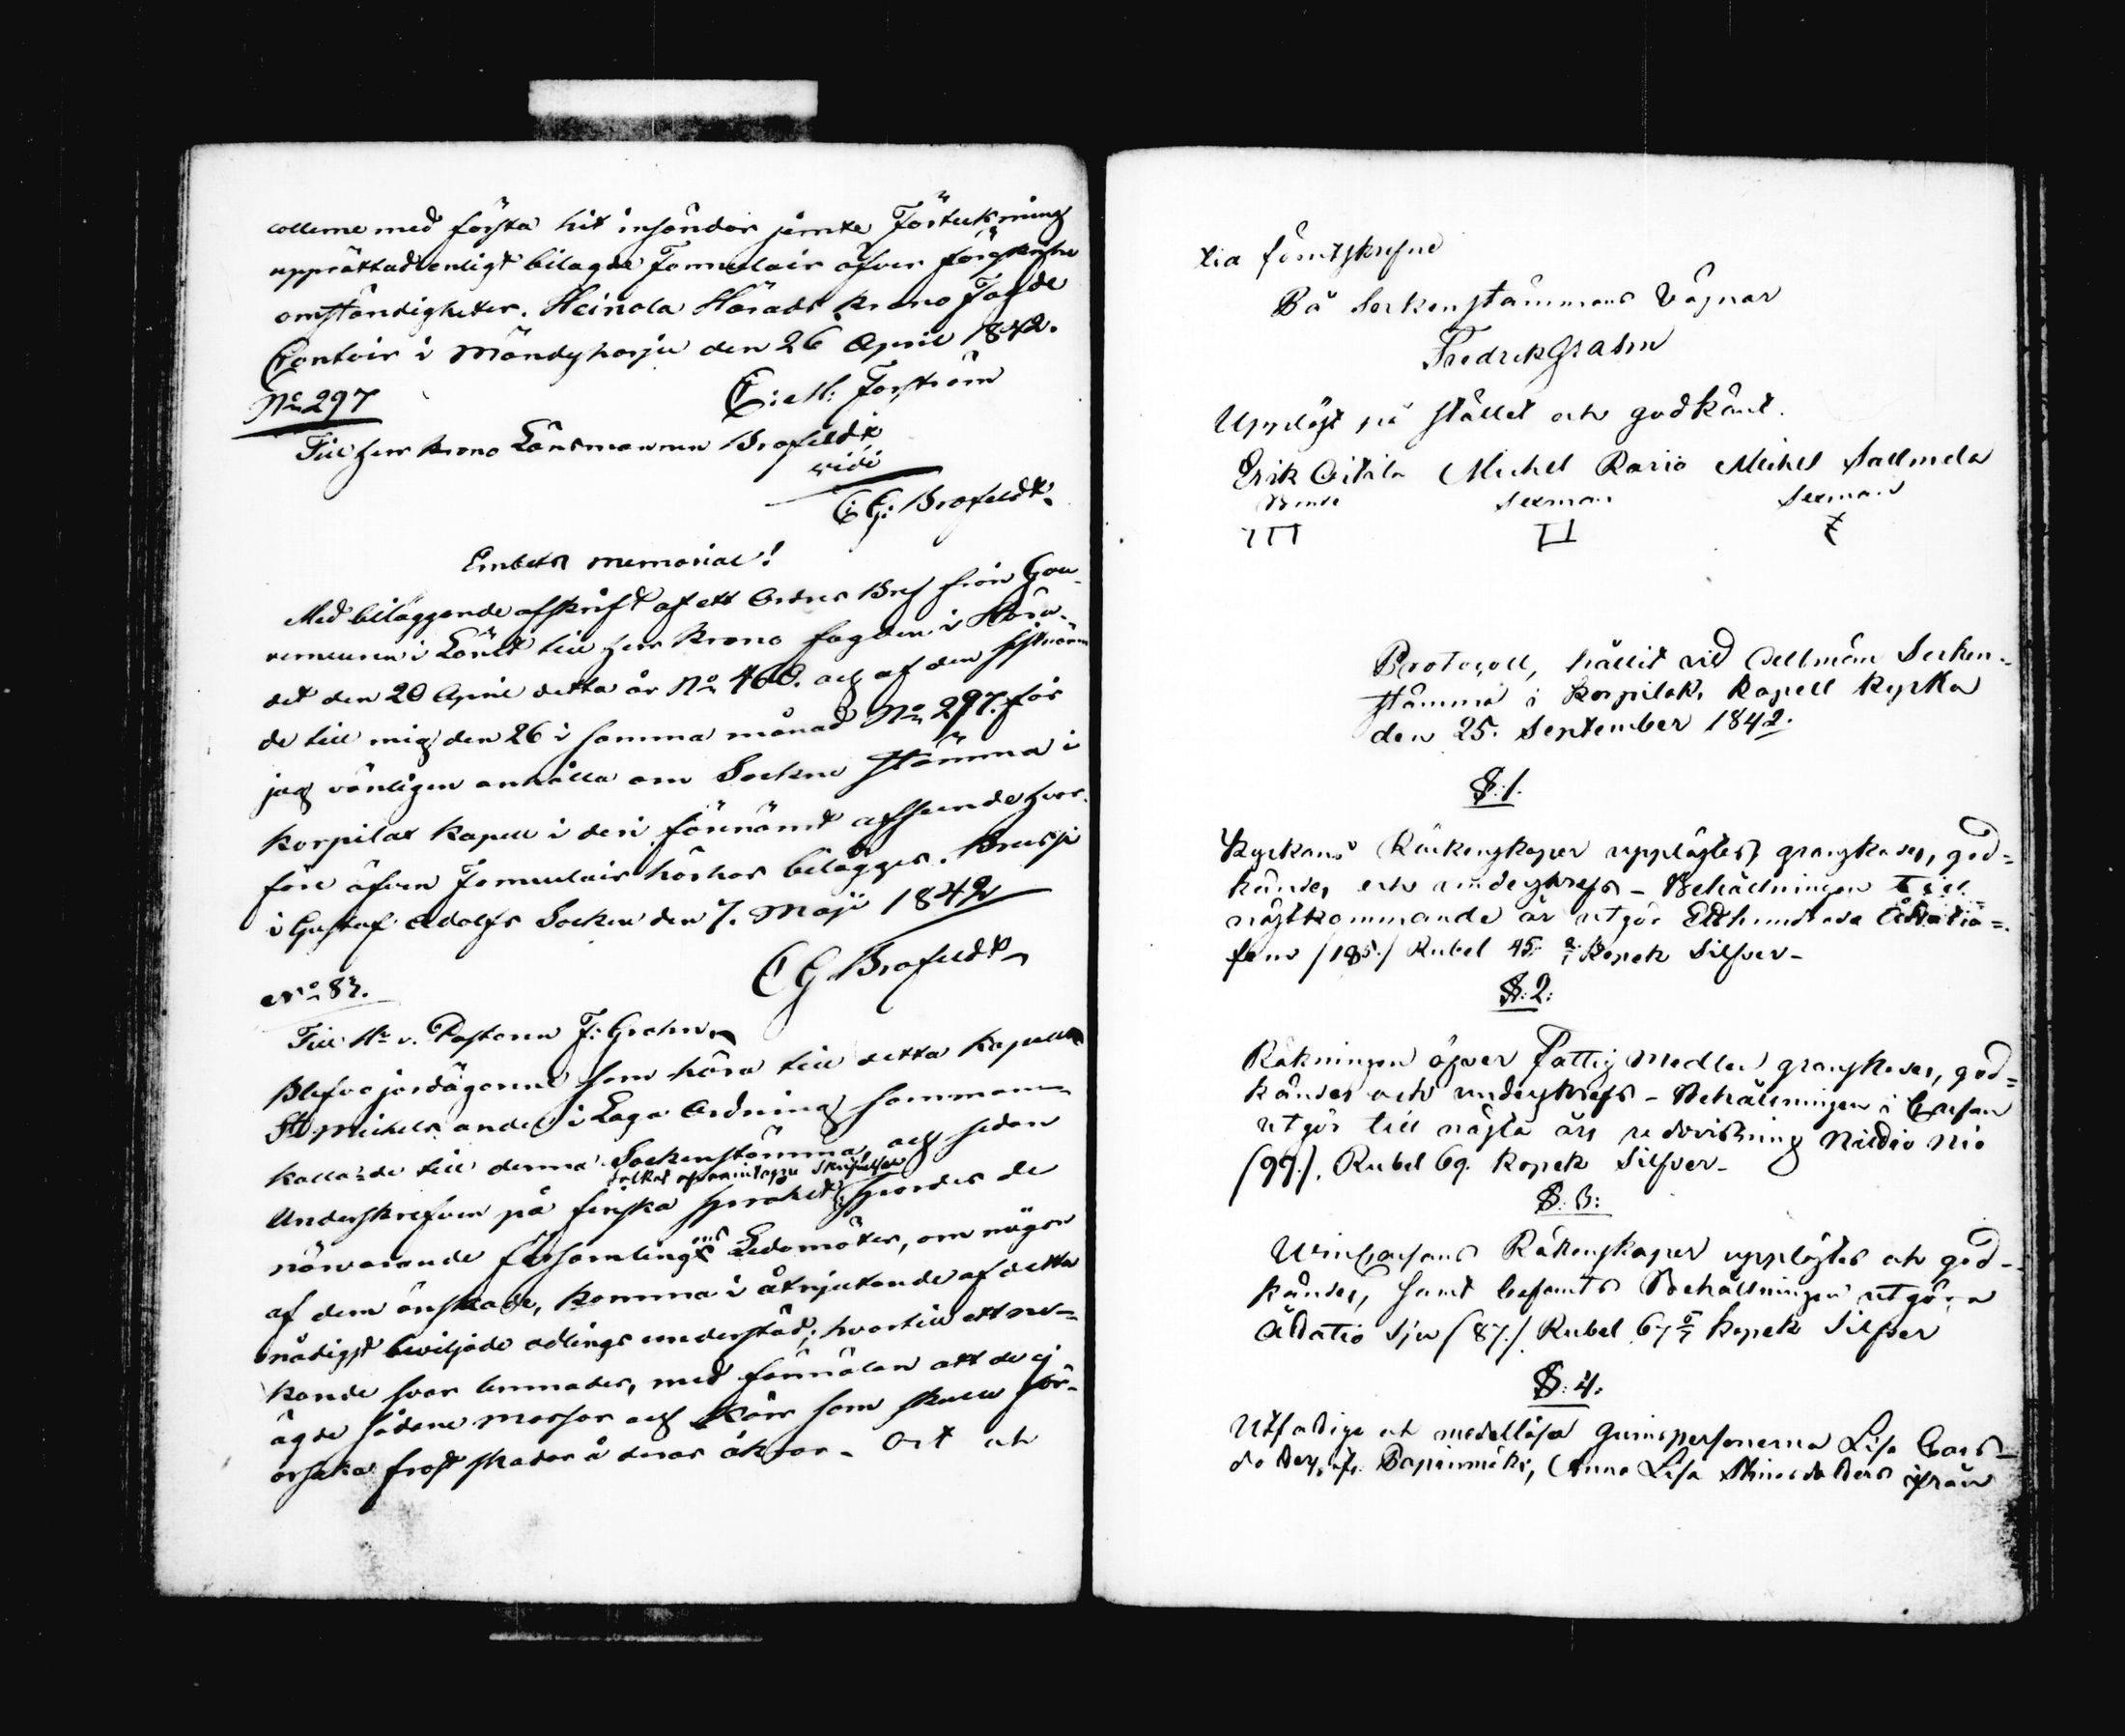 collerne med första hit insänder jemte Förteckning
upprättad enligt bilagde Formulair öfver förspörde
omständigheter. Heinola Härads Krono Fogde
Contoir i Mändyharju den 26 April 1842.
No 297
C: M: Forström
Till Herr Krono Länsmannen Brofeldt
vidi
C: G: Brofeldt.
Embets memorial!
Med biläggande afskrift af ett Ordres Bref från Gou-
verneuren i Länet till Herr Krono fogden i Hära-
det den 20 April detta år No 460. och af den sistnäm
de till mig den 26 i samma månad No 297. får
jag vänligen anhålla om Sockne stämma i
Korpilax Kapell i deri förenämt afseende hvar-
före äfven Formulair härhos bilägges. Kreusi
i Gustaf Adolfs Socken den 7. Maji 1842
C G Brofeldt
No 83.
Till Hr v. Pastoren F: Grahn
Blefvo jordägarne som höra till detta Kapell
St Michels andel i Laga Ordning samman-
kallade till denna Sockenstämma, och sedan
tolkat ofvanintagne Skrifvelser
Underskrefven på finska språket, spordes de
närvarande församlings Ledamöter, om någon
af dem önskade, komma i åtnjutande af detta
nådigst beviljade odlings understöd, hvartill ett ne-
kande svar lemnades, med förmälan att de ej
ägde sådane mossor och Kärr som skulle för-
orsaka frost skador å deras åkrar. Ort och
tid förutskrefne
På Sockenstämmans Vägnar
Fredrik Grahn
Uppläst på stället och godkänt.
Erik Michel Michel
Bonde Sexman Sexman
Protocoll, hållit vid Allmän Socken-
stämma i Korpilax Kapell Kyrka
den 25. September 1842.
§:1.
Kyrkans Räkenskaper upplästes, granskades, god-
kändes och underskrefs – Behållningen till
nästkommande år utgör Etthundrade Åttatio-
fem /185/ Rubel 45 Kopek Silfver –
§:2:
Räkningen öfver Fattig Medlen granskades, god-
kändes och underskrefs – Behållningen i Cassan
utgör till nästa års redovisning Nittio Nio
/99./. Rubel 69. Kopek Silfver –
§:3:
Cassans Räkenskaper upplästes och god-
kändes, samt befants Behållningen utgöra
Åttatio Sju /87./ Rubel 67 Kopek Silfver
§:4:
Utfattige och medellösa qvinspersonerna Lisa Carls-
dotter, fr. Anna Lisa ifrån